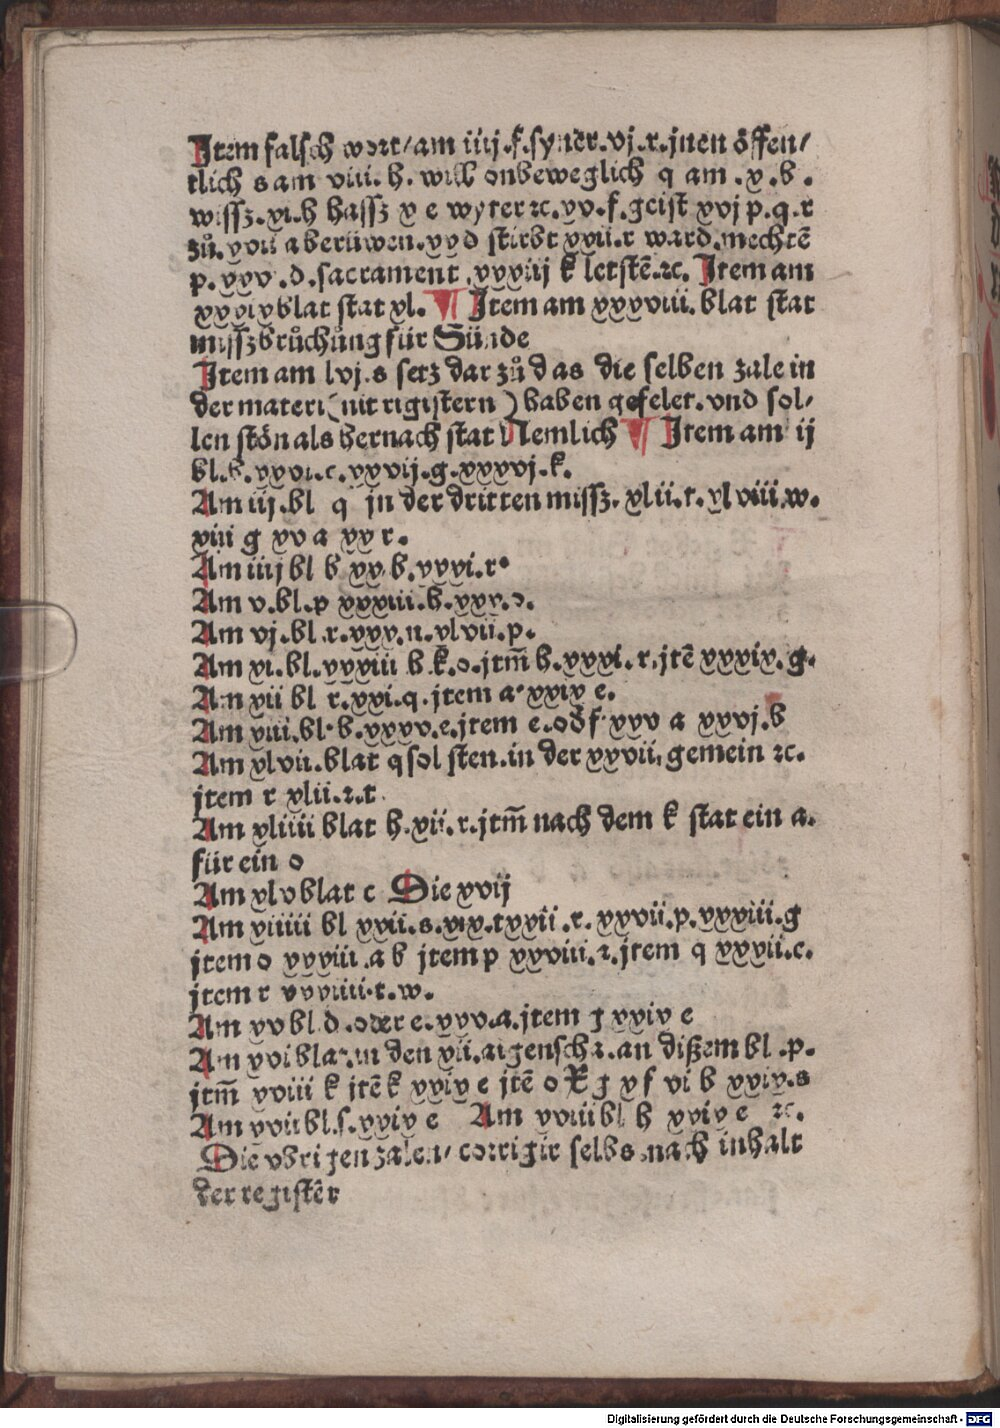 Jtem falsch wort/am iiij.f.syner.vj.r.jnen öffen/
tlich s am viii.h.will onbeweglich q am.x.b.
wissz.xi.h hassz x e wyter ⁊c.xv.f.geist xvj p.q.r
zů.xvii a berüwen.xx d stirbt xxii.r ward.mechtē
p.xxv.d.sacrament.xxxiij k letstē.⁊c. Jtem am
xxxix blat stat xl. ¶ Jtem am xxxviii.blat stat
misszbrůchůng für Sünde
Jtem am lvj.s setz dar zů das die selben zale in
der materi (nit rigistern) haben gefelet.vnd sol/
len stön als hernach stat Nemlich ¶ Jtem am ij
bl.b.xxvi.c.xxvij.g.xxxvj.k.
Am iij.bl q jn der dritten missz.xlii.t.xlviii.w.
xiii g xv a xx r.
Am iiij bl b xx.b.xxxi.r.
Am v.bl.p xxxiii.h.xxx.o.
Am vj.bl.r.xxx.n.xlvii.p.
Am xi.bl.xxxiii b k.o.jtm̄ b.xxxi.r.jtē xxxix.g.
Am xii bl r.xxi.q.jtem a.xxix e.
Am xiii.bl.b.xxxv.e.jtem e.od̄ f.xxv a xxxvj.b
Am xlvii.blat q sol sten.in der xxvii.gemein ⁊c.
jtem r xlii.⁊.t.
Am xliiii blat h.xii.r.jtm̄ nach dem k stat ein a.
für ein o
Am xlv blat c Die xvij
Am xiiiii bl xxii.s.xix.t xxii.r.xxvii.p.xxxiii.g
jtem o xxxiii.a b jtem p xxviii.⁊.jtem q xxxii.c.
jtem r xxxiiii.t.w.
Am xv bl d.oder e.xxv.a.jtem g xxix e
Am xvi blat.in den xii.aigenscha.an dißem bl.p.
jtm̄ xviii k jtē k xxix e jtē o X g x f vi b xxix.s
Am xvii bl.s.xxix e Am xviii bl h xxix e ⁊c.
Die vbrigen zalen/corrigir selbs nach inhalt
der registēr
Digitalisierung gefördert durch die Deutsche Forschungsgemeinschaft - DFG